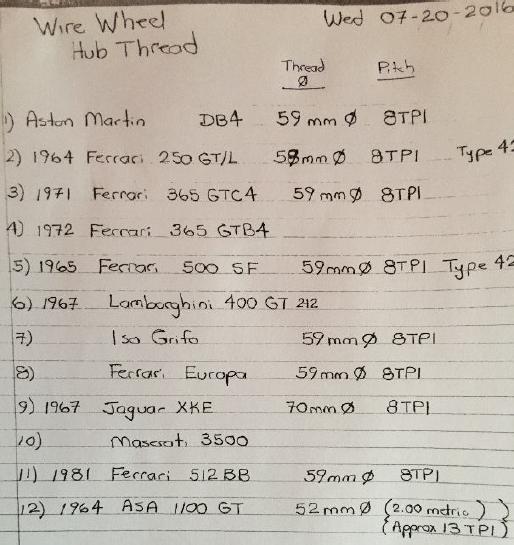 Wire Wheel Wed 07-20-2016
Hub Thread
Thread Pitch
Ø
1) Aston Martin DB4 59mm Ø 8TPI
2) 1964 Ferrari 250 GT/L 58mm Ø 8TPI Type 42
3) 1971 Ferrari 365 GTC4 59mm Ø 8TPI
4) 1972 Ferrari 365 GTB4
5) 1965 Ferrari 500 SF 59mm Ø 8TPI Type 42
6) 1967 Lamborghini 400 GT 212
7) Iso Grifo 59mm Ø 8TPI
8) Ferrari Europa 59mm Ø 8TPI
9) 1967 Jaguar XKE 70mm Ø 8TPI
10) Maserati 3500
11) 1981 Ferrari 512BB 59mm Ø 8TPI
12) 1964 ASA 1100 GT 52mm Ø (2.00 metric)
(Approx 13 TPI)